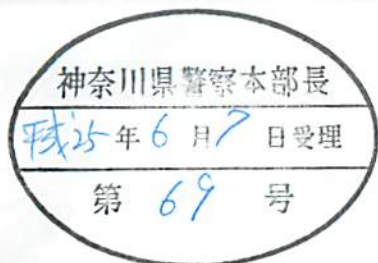 神奈川県警察本部長
平成25年6月7日受理
第69号